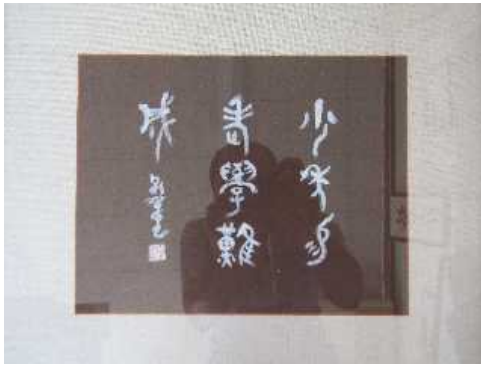 少年易
老學難
成